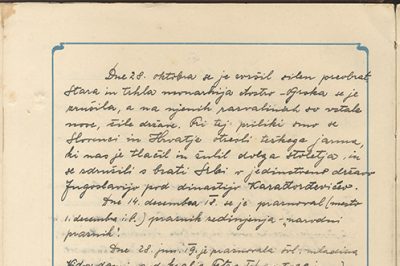 Dne 28. oktobra se je izvršil silen preobrat
Stara in trhla monarhija Avstro-Ogrska se je
zrušila, a na njenih razvalinah so vstale
nove, čile države. Pri tej priliki smo se
Slovenci in Hrvatje otresli težkega jarma,
ki nas je tlačil in žulil dolga stoletja, in
se združili z brati Srbi v jedinstveno državo
Jugoslavijo pod dinastijo Karadžordževićev.
Dne 14. decembra 18. se je praznoval (mesto
1. decembra t.l.) praznik zedinjenja - "narodni
praznik".
Dne 28. jun. 19. je praznovala šol. mladina